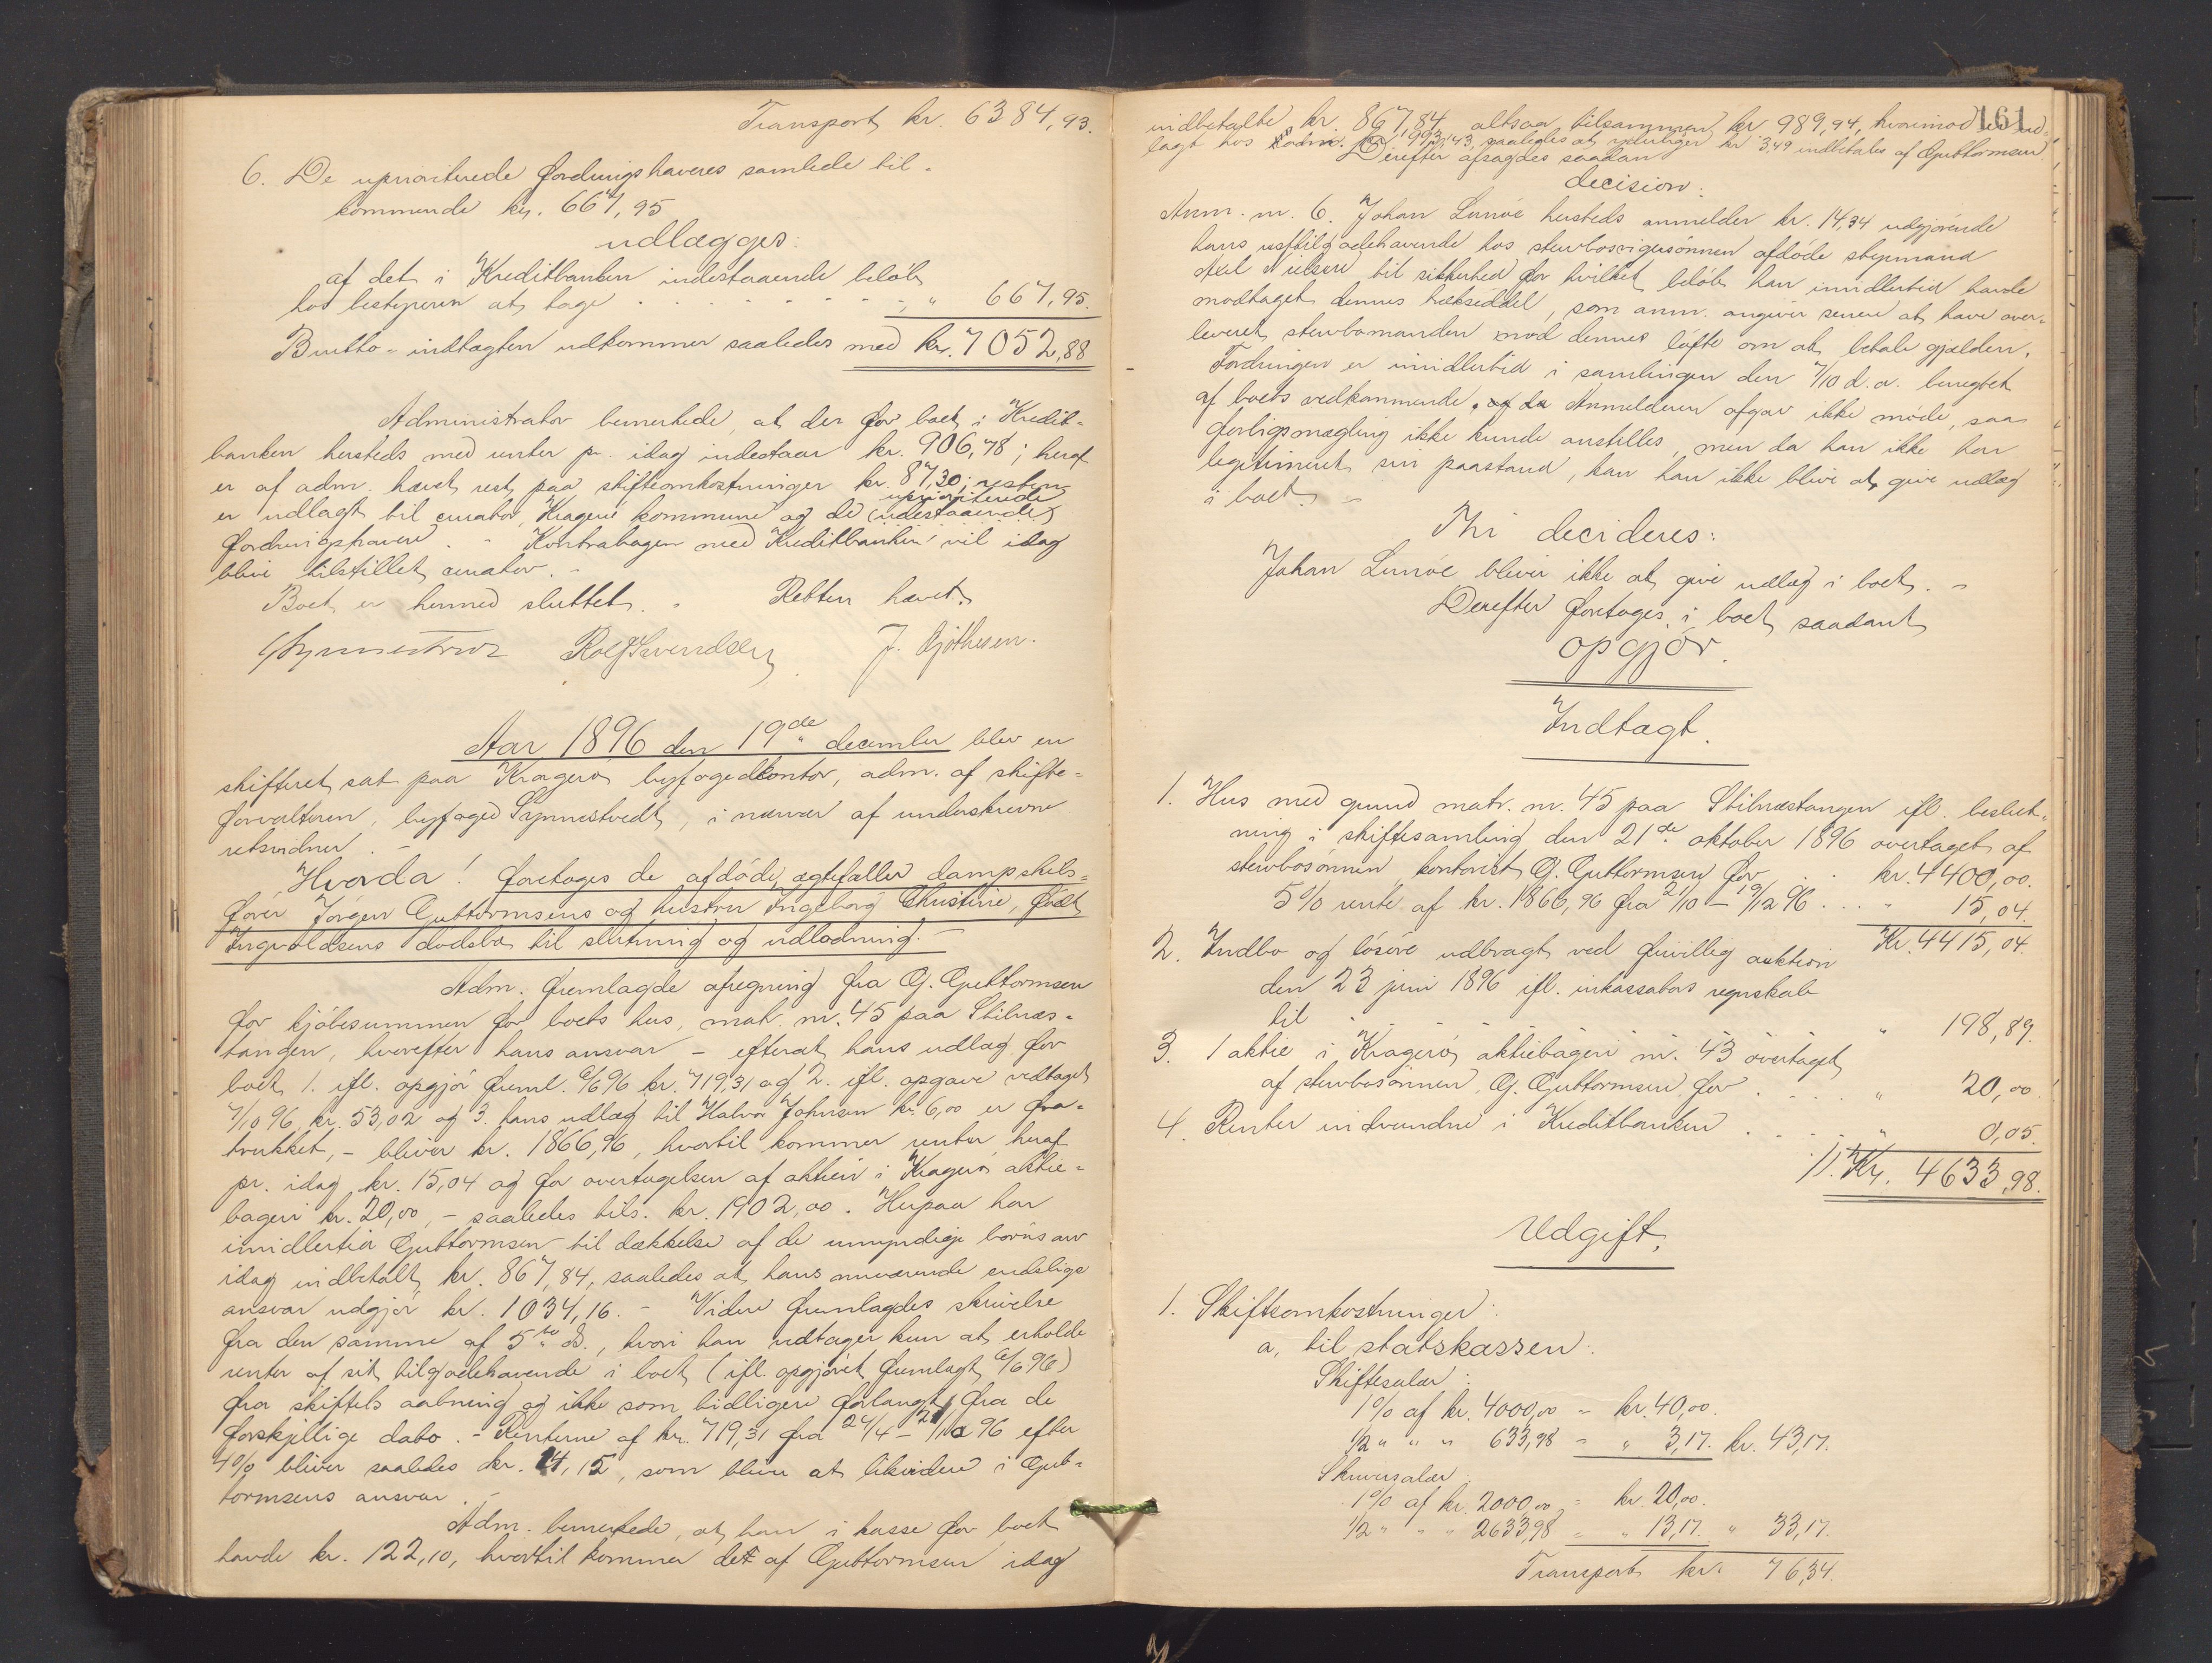 Transport kr. 6384,93.
6. De uprioriterede fordringshaveres samlede til-
kommende kr. 667,95
udlægges:
af det i Kreditbanken indestaaende beløb
hos bestyreren at tage " 667,95.
Brutto-indtægten udkommer saaledes med kr. 7052,88
Administrator bemerkede, at der for boet i Kredit-
banken hersteds med renter pr. idag indestaar kr. 906,78; heraf
er af adm. hævet rest paa skifteomkostninger kr. 87,30; resten
uprioriterede
er udlagt til curator, Kragerø kommune og de (udestaaende)
fordringshavere. - Kontrabogen med Kreditbanken vil idag
blive tilstillet curator. -
Boet er hermed sluttet. - Retten hævet.
Synnestvedt Rolf Svendsen J. Gjøthesen.
Aar 1896 den 19de december blev en
skifteret sat paa Kragerø byfogedkontor, adm. af skifte-
forvalteren, byfoged Synnestvedt, i nærvær af underskrevne
retsvidner. -
Hvorda! foretoges de afdøde ægtefæller dampskibs-
fører Jørgen Guttormsens og hustru Ingeborg Christine, født
Ingvoldsens dødsbo til slutning og udlodning. -
Adm. fremlagde afregning fra G. Guttormsen
for kjøbesummen for boets hus, matr. nr. 45 paa Stilnæs-
tangen, hvorefter hans ansvar - efterat hans udlæg for
boet 1. ifl. opgjør freml. 6/6 96 kr. 719,31 og 2. ifl. opgave vedtaget
7/10 96 kr. 53,02 og 3. hans udlæg til Halvor Johnsen kr. 6,00 er fra-
trukket, - bliver kr. 1866,96, hvortil kommer renter heraf
pr. idag kr. 15,04 og for overtagelsen af aktien i Kragerø aktie-
bageri kr. 20,00, - saaledes tils. kr. 1902,00. Herpaa har
imidlertid Guttormsen til dækkelse af de umyndige børns arv
idag indbetalt kr. 867,84, saaledes at hans nuværende endelige
ansvar udgjør kr. 1034,16. - Videre fremlagdes skrivelse
fra den samme af 5te ds., hvori han vedtager kun at erholde
renter af sit tilgodehavende i boet (ifl. opgjøret fremlagt 6/6 96)
fra skiftets aabning og ikke som tidligere forlangt fra de
forskjellige dato. - Renterne af kr. 719,31 fra 24/4 - 21/10 96 efter
4% bliver saaledes kr. 14,15, som bliver at likvidere i Gut-
tormsens ansvar. -
Adm. bemerkede, at han i kasse for boet
havde kr. 122,10, hvortil kommer det af Guttormsen idag
161
indbetalte kr. 867,84 altsaa tilsammen kr 989,94, hvorimod er ud-
lagt hos adm. kr. 993,43, saaledes at yderligere kr 3,49 indbetales af Guttormsen
Derefter afsagdes saadan
decision:
Anm. nr. 6. Johan Lunøe hersteds anmelder kr. 14,34 udgjørende
hans resttilgodehavende hos stervbosvigersønnen afdøde styrmand
Axel Nielsen til sikkerhed for hvilket beløb han imidlertid havde
modtaget dennes trækseddel, som anm. angiver senere at have over-
leveret stervbomanden mod dennes løfte om at betale gjælden.
Fordringen er imidlertid i samlingen den 7/10 d. a. benegtet
af boets vedkommende, og da Anmelderen afgav ikke møde, saa
forligsmægling ikke kunde anstilles, men da han ikke har
legitimeret sin paastand, kan han ikke blive at give udlæg
i boet. -
Thi decideres:
Johan Lunøe bliver ikke at give udlæg i boet. -
Derefter foretoges i boet saadant
opgjør.
Indtægt.
1. Hus med grund matr. nr. 45 paa Stilnæstangen ifl. beslut-
ning i skiftesamling den 21de oktober 1896 overtaget af
stervbosønnen kontorist G. Guttormsen for . . kr. 4400,00.
5% rente af kr. 1866,96 fra 21/10 - 19/12 96 . . . " 15,04.
Kr. 4415,04.
2. Indbo og løsøre udbragt ved frivillig auktion
den 23 juni 1896 ifl. inkassators regnskab
til " 198,89.
3. 1 aktie i Kragerø aktiebageri nr. 43 overtaget
af stervbosønnen G. Guttormsen for . . . . " 20,00.
4. Renter indvundne i Kreditbanken . . . . " 0,05.
Kr. 4633,98.
Udgift.
1. Skifteomkostninger:
a, til statskassen:
Skiftesalær:
1% af kr. 4000,00 = kr. 40,00.
1/2 " " " 633,98 = " 3,17. kr. 43,17.
Skriversalær
1% af kr. 2000,00 = kr. 20,00.
1/2 " " " 2633,98 = " 13,17. " 33,17.
Transport kr. 76,34.